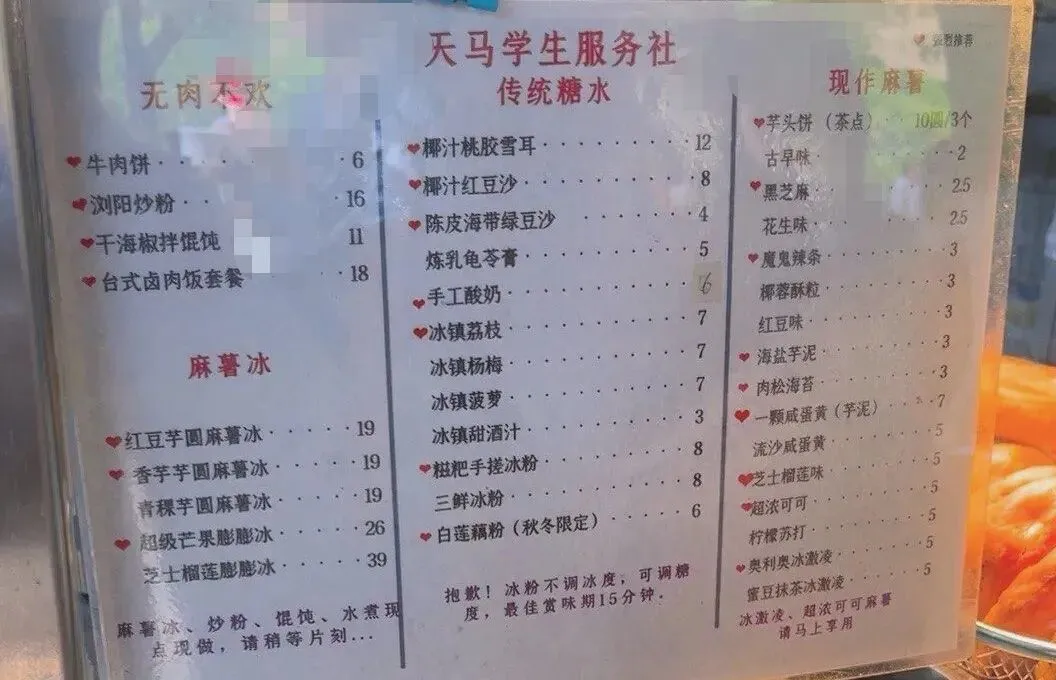 天马学生服务社
❤ 强烈推荐
无肉不欢
❤牛肉饼 6
❤浏阳炒粉 16
❤干海椒拌馄饨 11
❤台式卤肉饭套餐 18
麻薯冰
❤红豆芋圆麻薯冰 19
❤香芋芋圆麻薯冰 19
青稞芋圆麻薯冰 19
❤超级芒果膨膨冰 26
芝士榴莲膨膨冰 39
麻薯冰、炒粉、馄饨、水煮现
点现做，请稍等片刻...
传统糖水
❤椰汁桃胶雪耳 12
❤椰汁红豆沙 8
❤陈皮海带绿豆沙 4
炼乳龟苓膏 5
❤手工酸奶 6
❤冰镇荔枝 7
冰镇杨梅 7
冰镇菠萝 7
冰镇甜酒汁 3
❤糍粑手搓冰粉 8
三鲜冰粉 8
❤白莲藕粉（秋冬限定） 6
抱歉！冰粉不调冰度，可调糖
度，最佳赏味期15分钟。
现作麻薯
❤芋头饼（茶点） 10圆/3个
古早味 2
❤黑芝麻 2.5
花生味 2.5
❤魔鬼辣条 3
椰蓉酥粒 3
红豆味 3
❤海盐芋泥 3
❤肉松海苔 3
❤一颗咸蛋黄（芋泥） 7
流沙咸蛋黄 5
❤芝士榴莲味 5
❤超浓可可 5
柠檬苏打 5
❤奥利奥冰激凌 5
蜜豆抹茶冰激凌 5
冰激凌、超浓可可麻薯
请马上享用